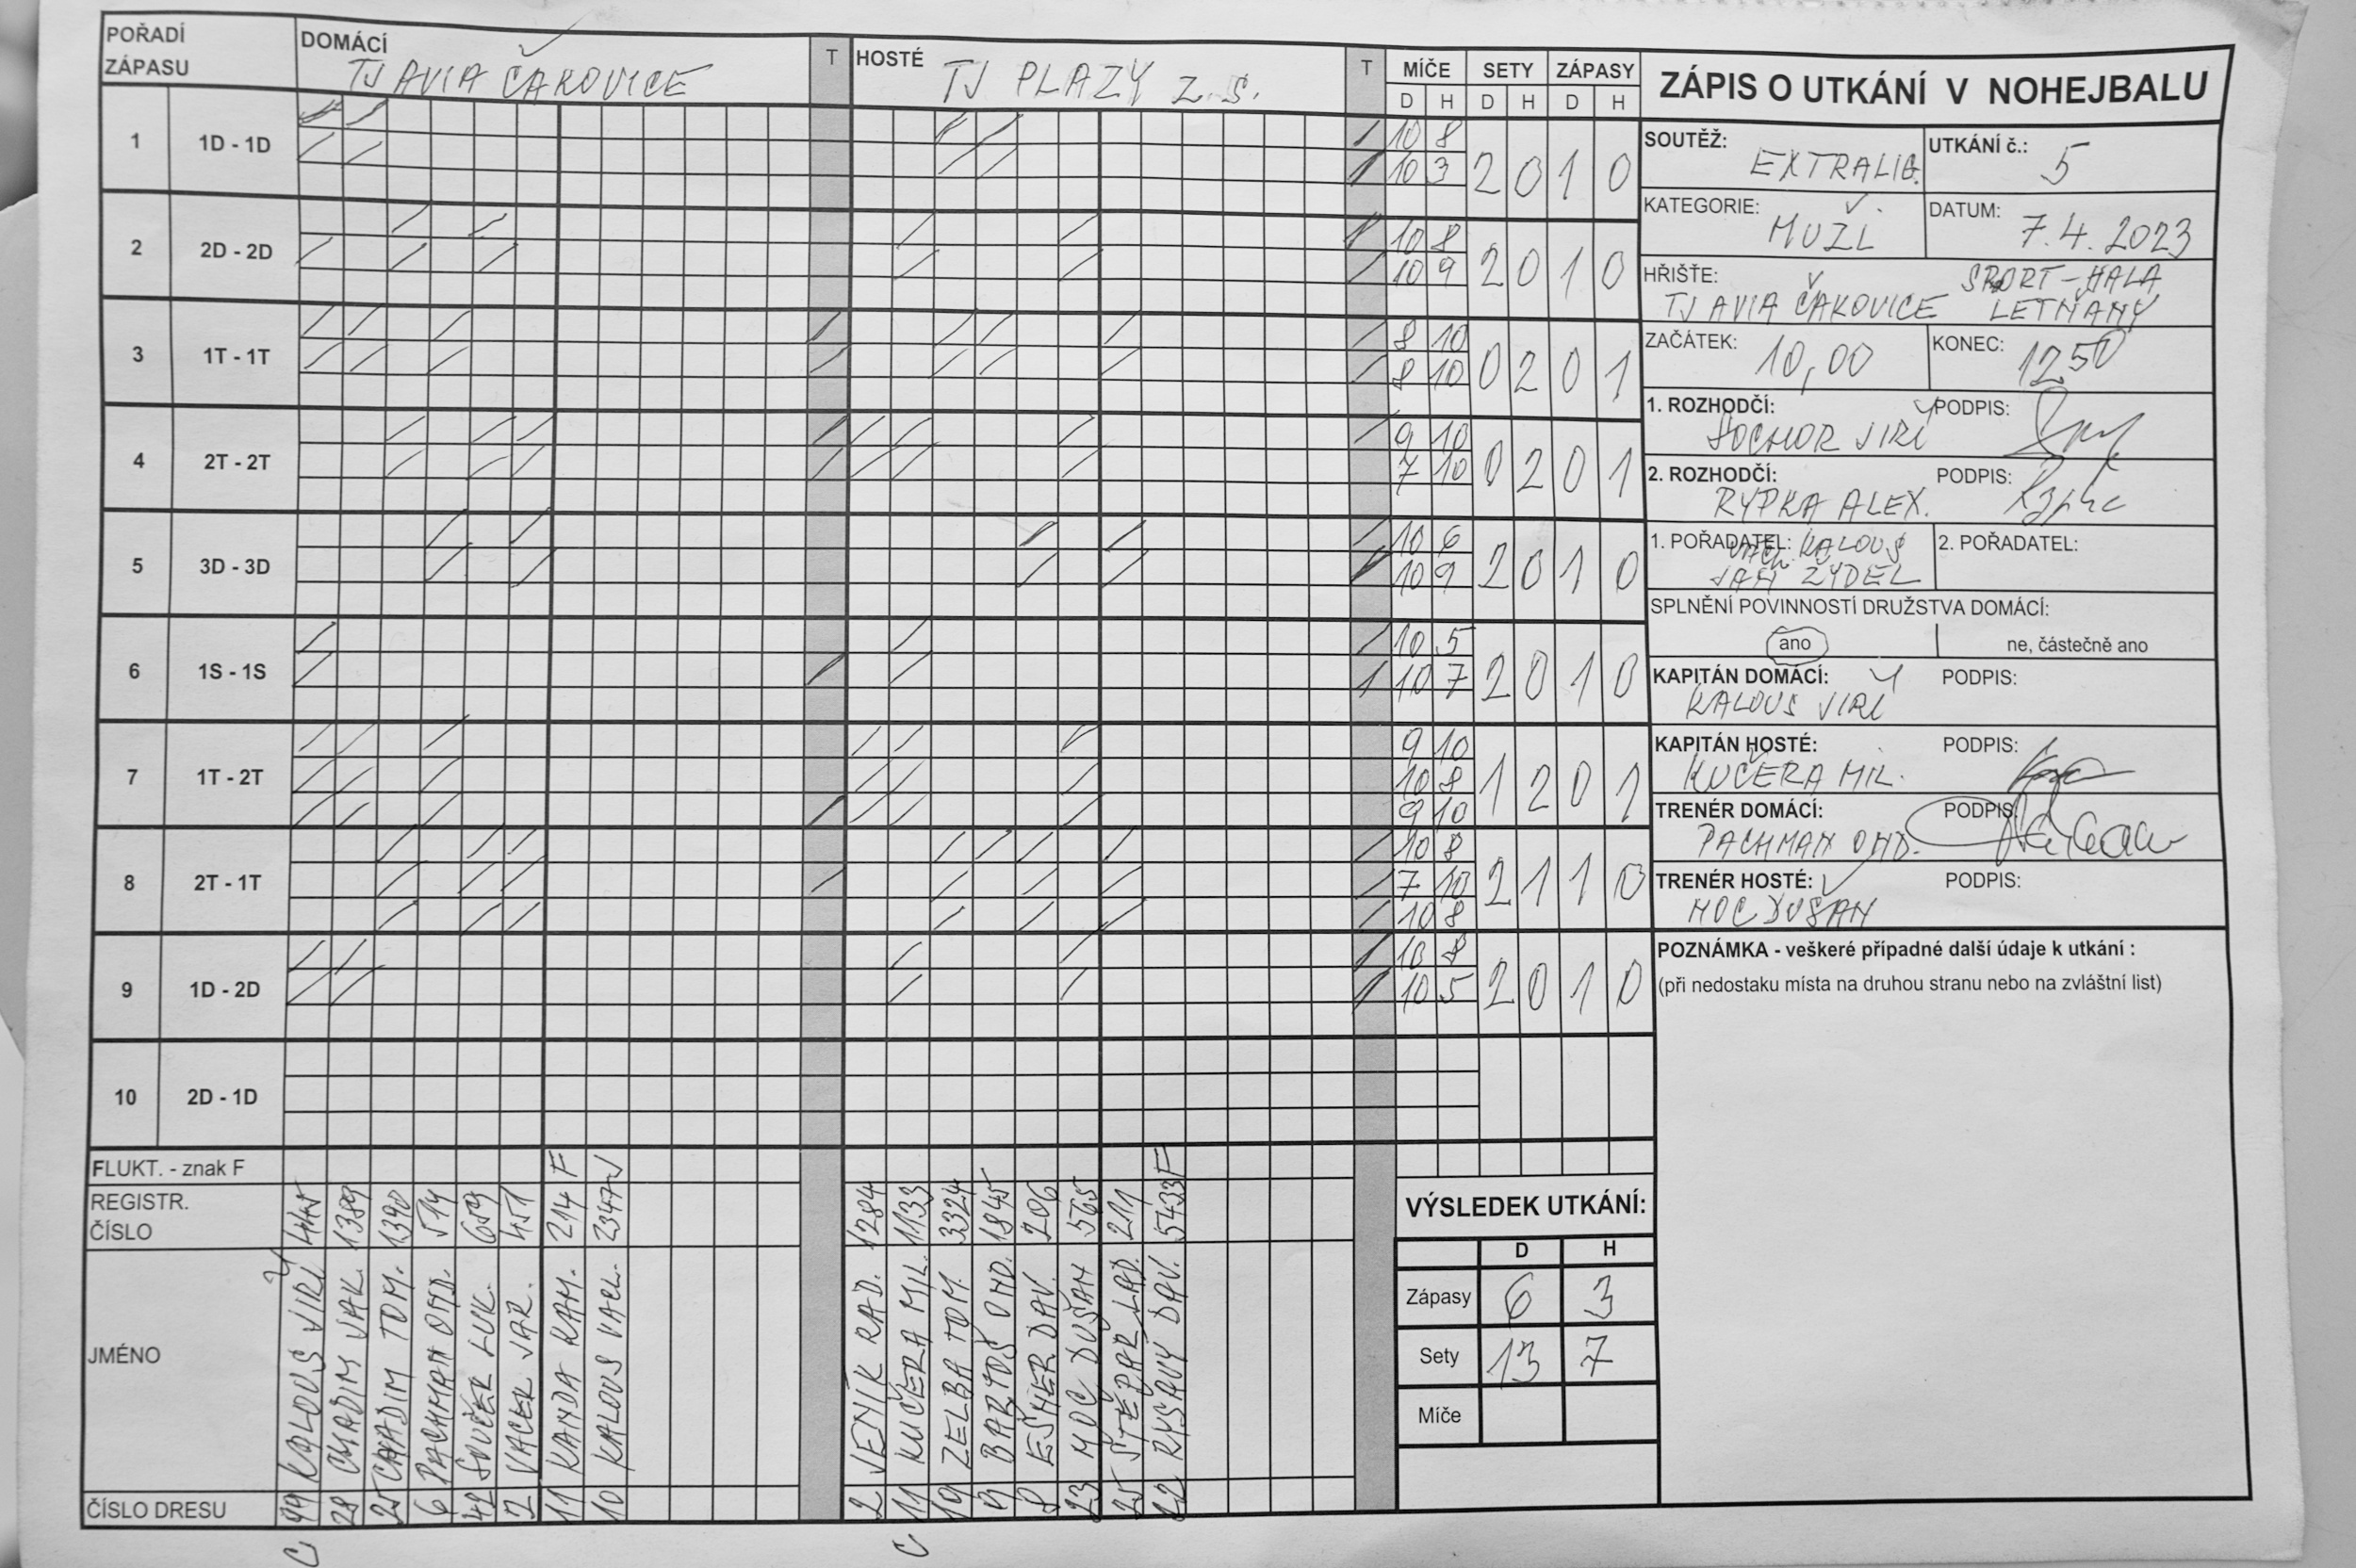 POŘADÍ ZÁPASU
DOMÁCÍ TJ AVIA ČAKOVICE
T
HOSTÉ TJ PLAZY Z.S.
T
MÍČE SETY ZÁPASY
D H D H D H
1 1D - 1D
10 8
10 3
2 0 1 0
2 2D - 2D
10 8
10 9
2 0 1 0
3 1T - 1T
8 10
8 10
0 2 0 1
4 2T - 2T
9 10
7 10
0 2 0 1
5 3D - 3D
10 6
10 9
2 0 1 0
6 1S - 1S
10 5
10 7
2 0 1 0
7 1T - 2T
9 10
10 8
9 10
1 2 0 1
8 2T - 1T
10 8
7 10
10 8
2 1 1 0
9 1D - 2D
10 8
10 5
2 0 1 0
10 2D - 1D
FLUKT. - znak F
REGISTR. ČÍSLO
JMÉNO
ČÍSLO DRESU
99 KALOUS JIŘÍ
28 CHADIM JAK. 1389
25 CHADIM TOM. 1390
6 PACHMAN OND. 514
42 SOUČEK LUK. 659
7 VACEK JAR. 451
11 KANDA KAM. 214 F
10 KALOUS VACL. 2347
C
2 JENÍK RAD. 1284
11 KUČERA MIL. 1133
19 ZELBA TOM. 3324
9 BARTOŠ OND. 1845
8 EŠNER DAV. 206
23 MOC DUŠAN 565
25 ŠTĚPÁR LAD. 211
22 RYŠAVÝ DAV. 5433 F
C
ZÁPIS O UTKÁNÍ V NOHEJBALU
SOUTĚŽ: EXTRALIG.
UTKÁNÍ č.: 5
KATEGORIE: MUŽI
DATUM: 7.4.2023
HŘIŠTĚ: SPORT-HALA
TJ AVIA ČAKOVICE LETŇANY
ZAČÁTEK: 10,00
KONEC: 12,50
1. ROZHODČÍ: PODPIS:
SOCHOR JIŘÍ
2. ROZHODČÍ: PODPIS:
RYPKA ALEX.
1. POŘADATEL: KALOUS
JAN ZYDEL
2. POŘADATEL:
SPLNĚNÍ POVINNOSTÍ DRUŽSTVA DOMÁCÍ:
ano ne, částečně ano
KAPITÁN DOMÁCÍ: PODPIS:
KALOUS JIŘÍ
KAPITÁN HOSTÉ: PODPIS:
KUČERA MIL.
TRENÉR DOMÁCÍ: PODPIS:
PACHMAN OND.
TRENÉR HOSTÉ: PODPIS:
MOC DUŠAN
POZNÁMKA - veškeré případné další údaje k utkání :
(při nedostaku místa na druhou stranu nebo na zvláštní list)
VÝSLEDEK UTKÁNÍ:
D H
Zápasy 6 3
Sety 13 7
Míče